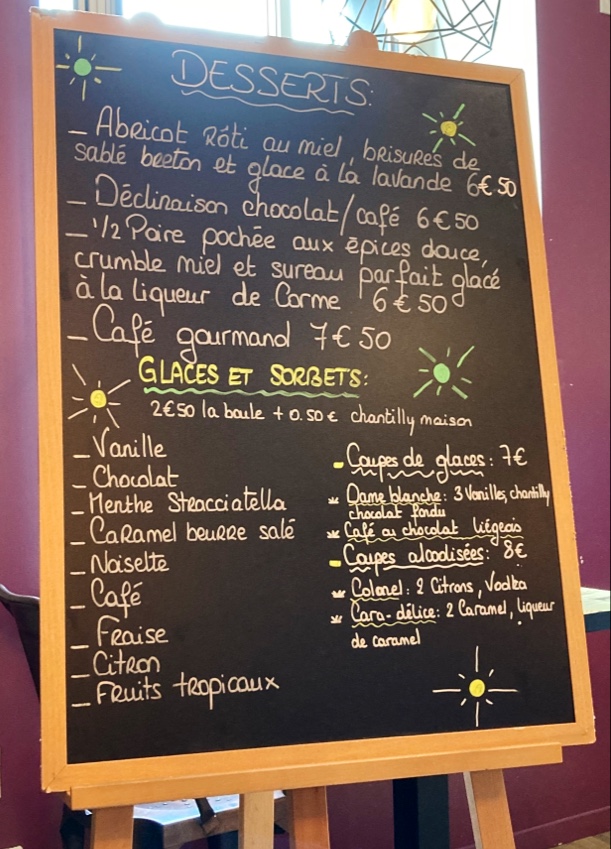 DESSERTS:
_ Abricot Rôti au miel, brisures de
sablé breton et glace à la lavande 6€50
_ Déclinaison chocolat/café 6€50
_ 1/2 Poire pochée aux épices douce,
crumble miel et sureau parfait glacé
à la liqueur de Corme 6€50
_ Café gourmand 7€50
GLACES ET SORBETS:
2€50 la boule + 0.50€ chantilly maison
_ Vanille
_ Chocolat
_ Menthe Stracciatella
_ Caramel beurre salé
_ Noisette
_ Café
_ Fraise
_ Citron
_ Fruits tropicaux
- Coupes de glaces: 7€
* Dame blanche: 3 Vanilles, chantilly
chocolat fondu
* Café ou chocolat liégeois
- Coupes alcoolisées: 8€
* Colonel: 2 Citrons, Vodka
* Cara-délice: 2 Caramel, liqueur
de caramel